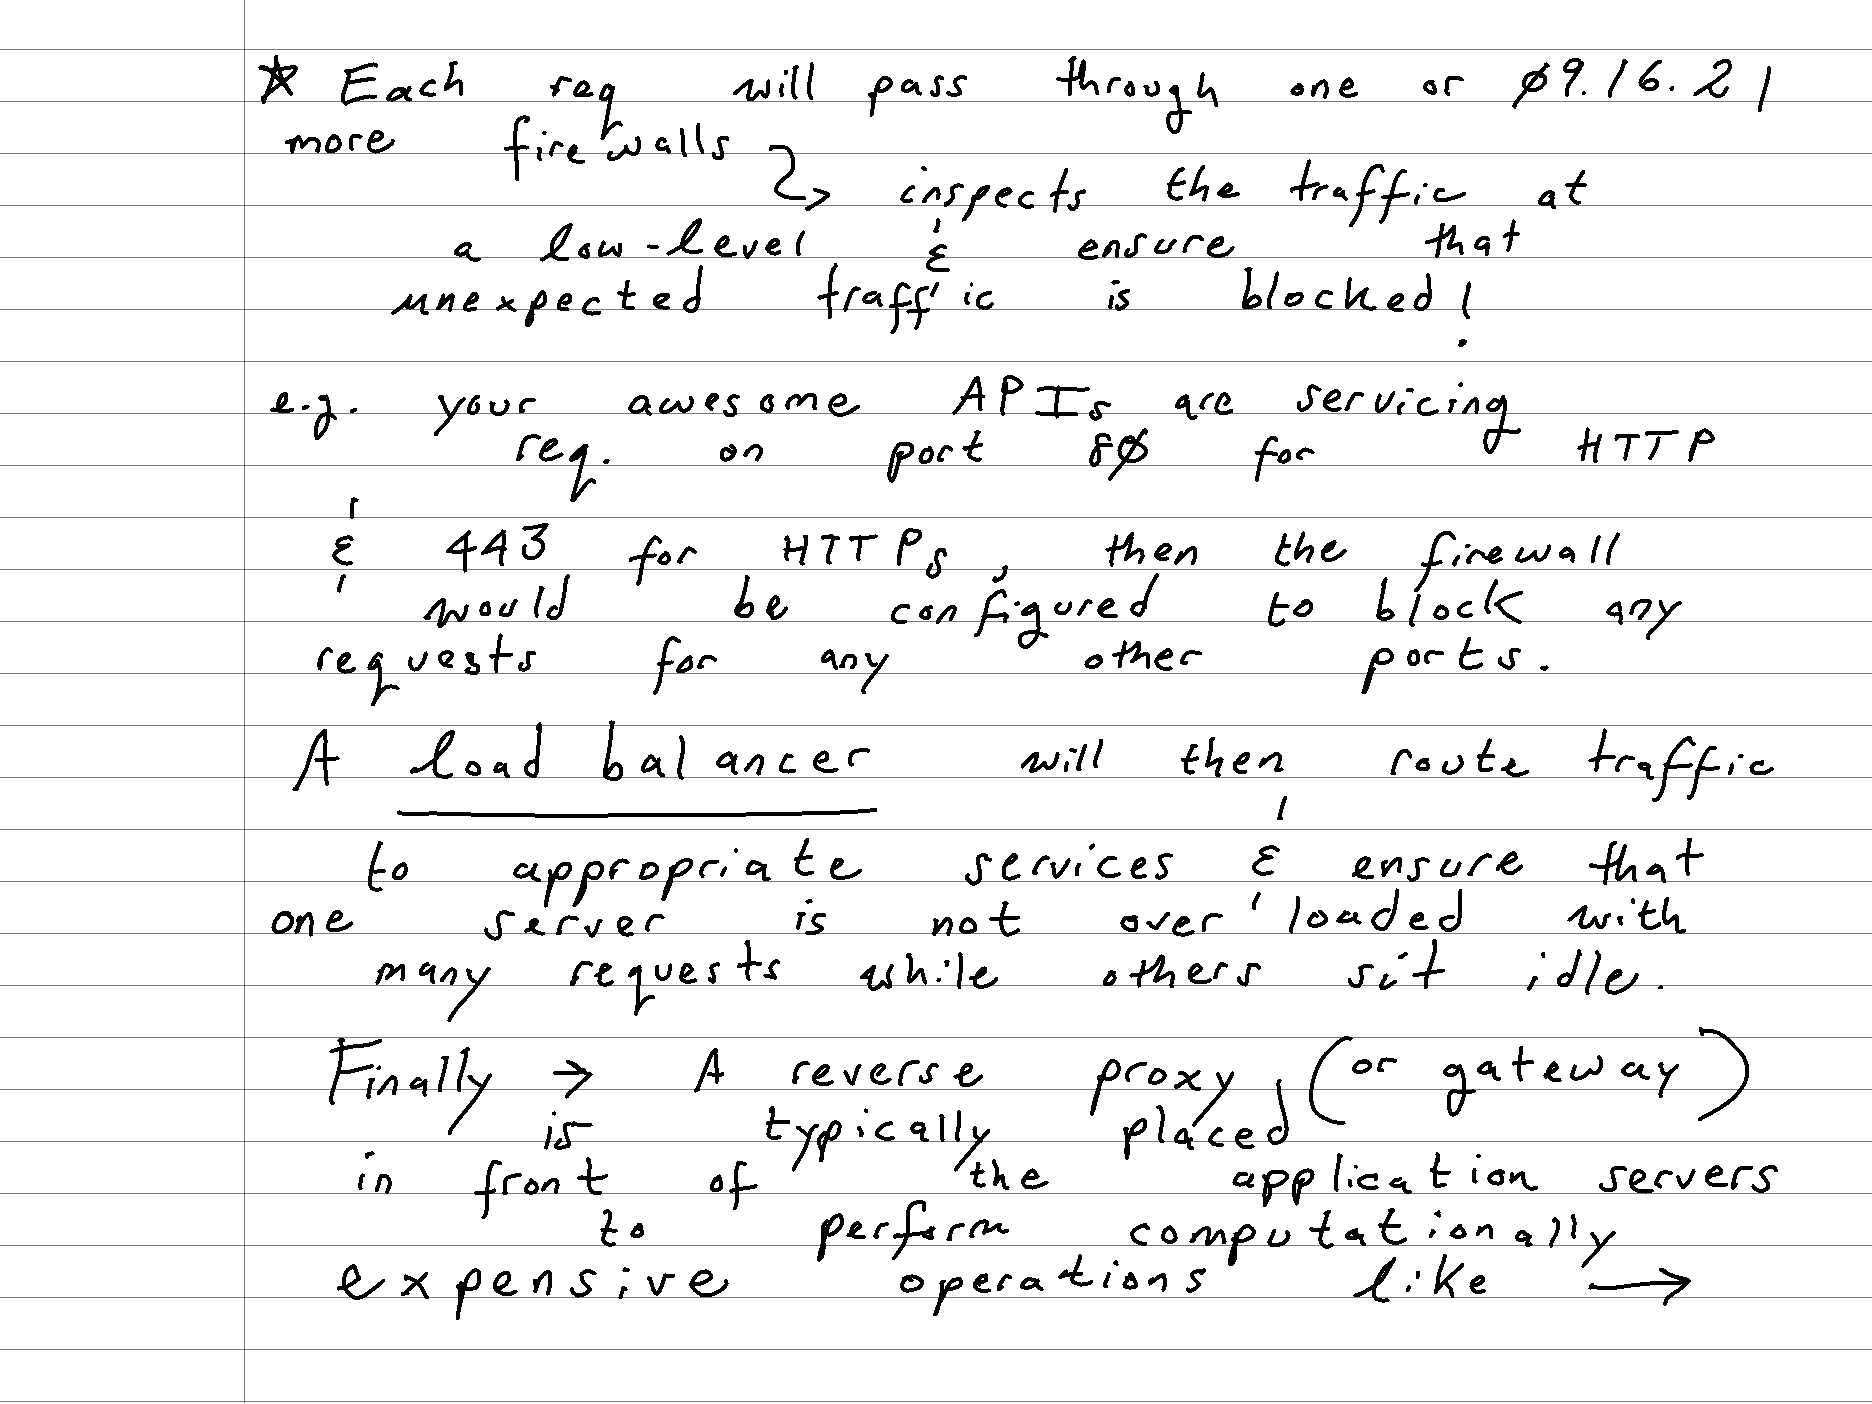 ☆ Each req will pass through one or 09.16.21
more firewalls
↳ inspects the traffic at
a low-level & ensure that
unexpected traffic is blocked!
e.g. your awesome APIs are servicing
req. on port 80 for HTTP
& 443 for HTTPs, then the firewall
would be configured to block any
requests for any other ports.
A load balancer will then route traffic
to appropriate services & ensure that
one server is not overloaded with
many requests while others sit idle.
Finally → A reverse proxy, (or gateway)
is typically placed
in front of the application servers
to perform computationally
expensive operations like →